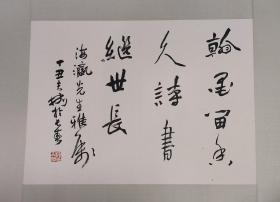 翰墨留香
久詩書
繼世長
海瀛先生雅屬
丁丑